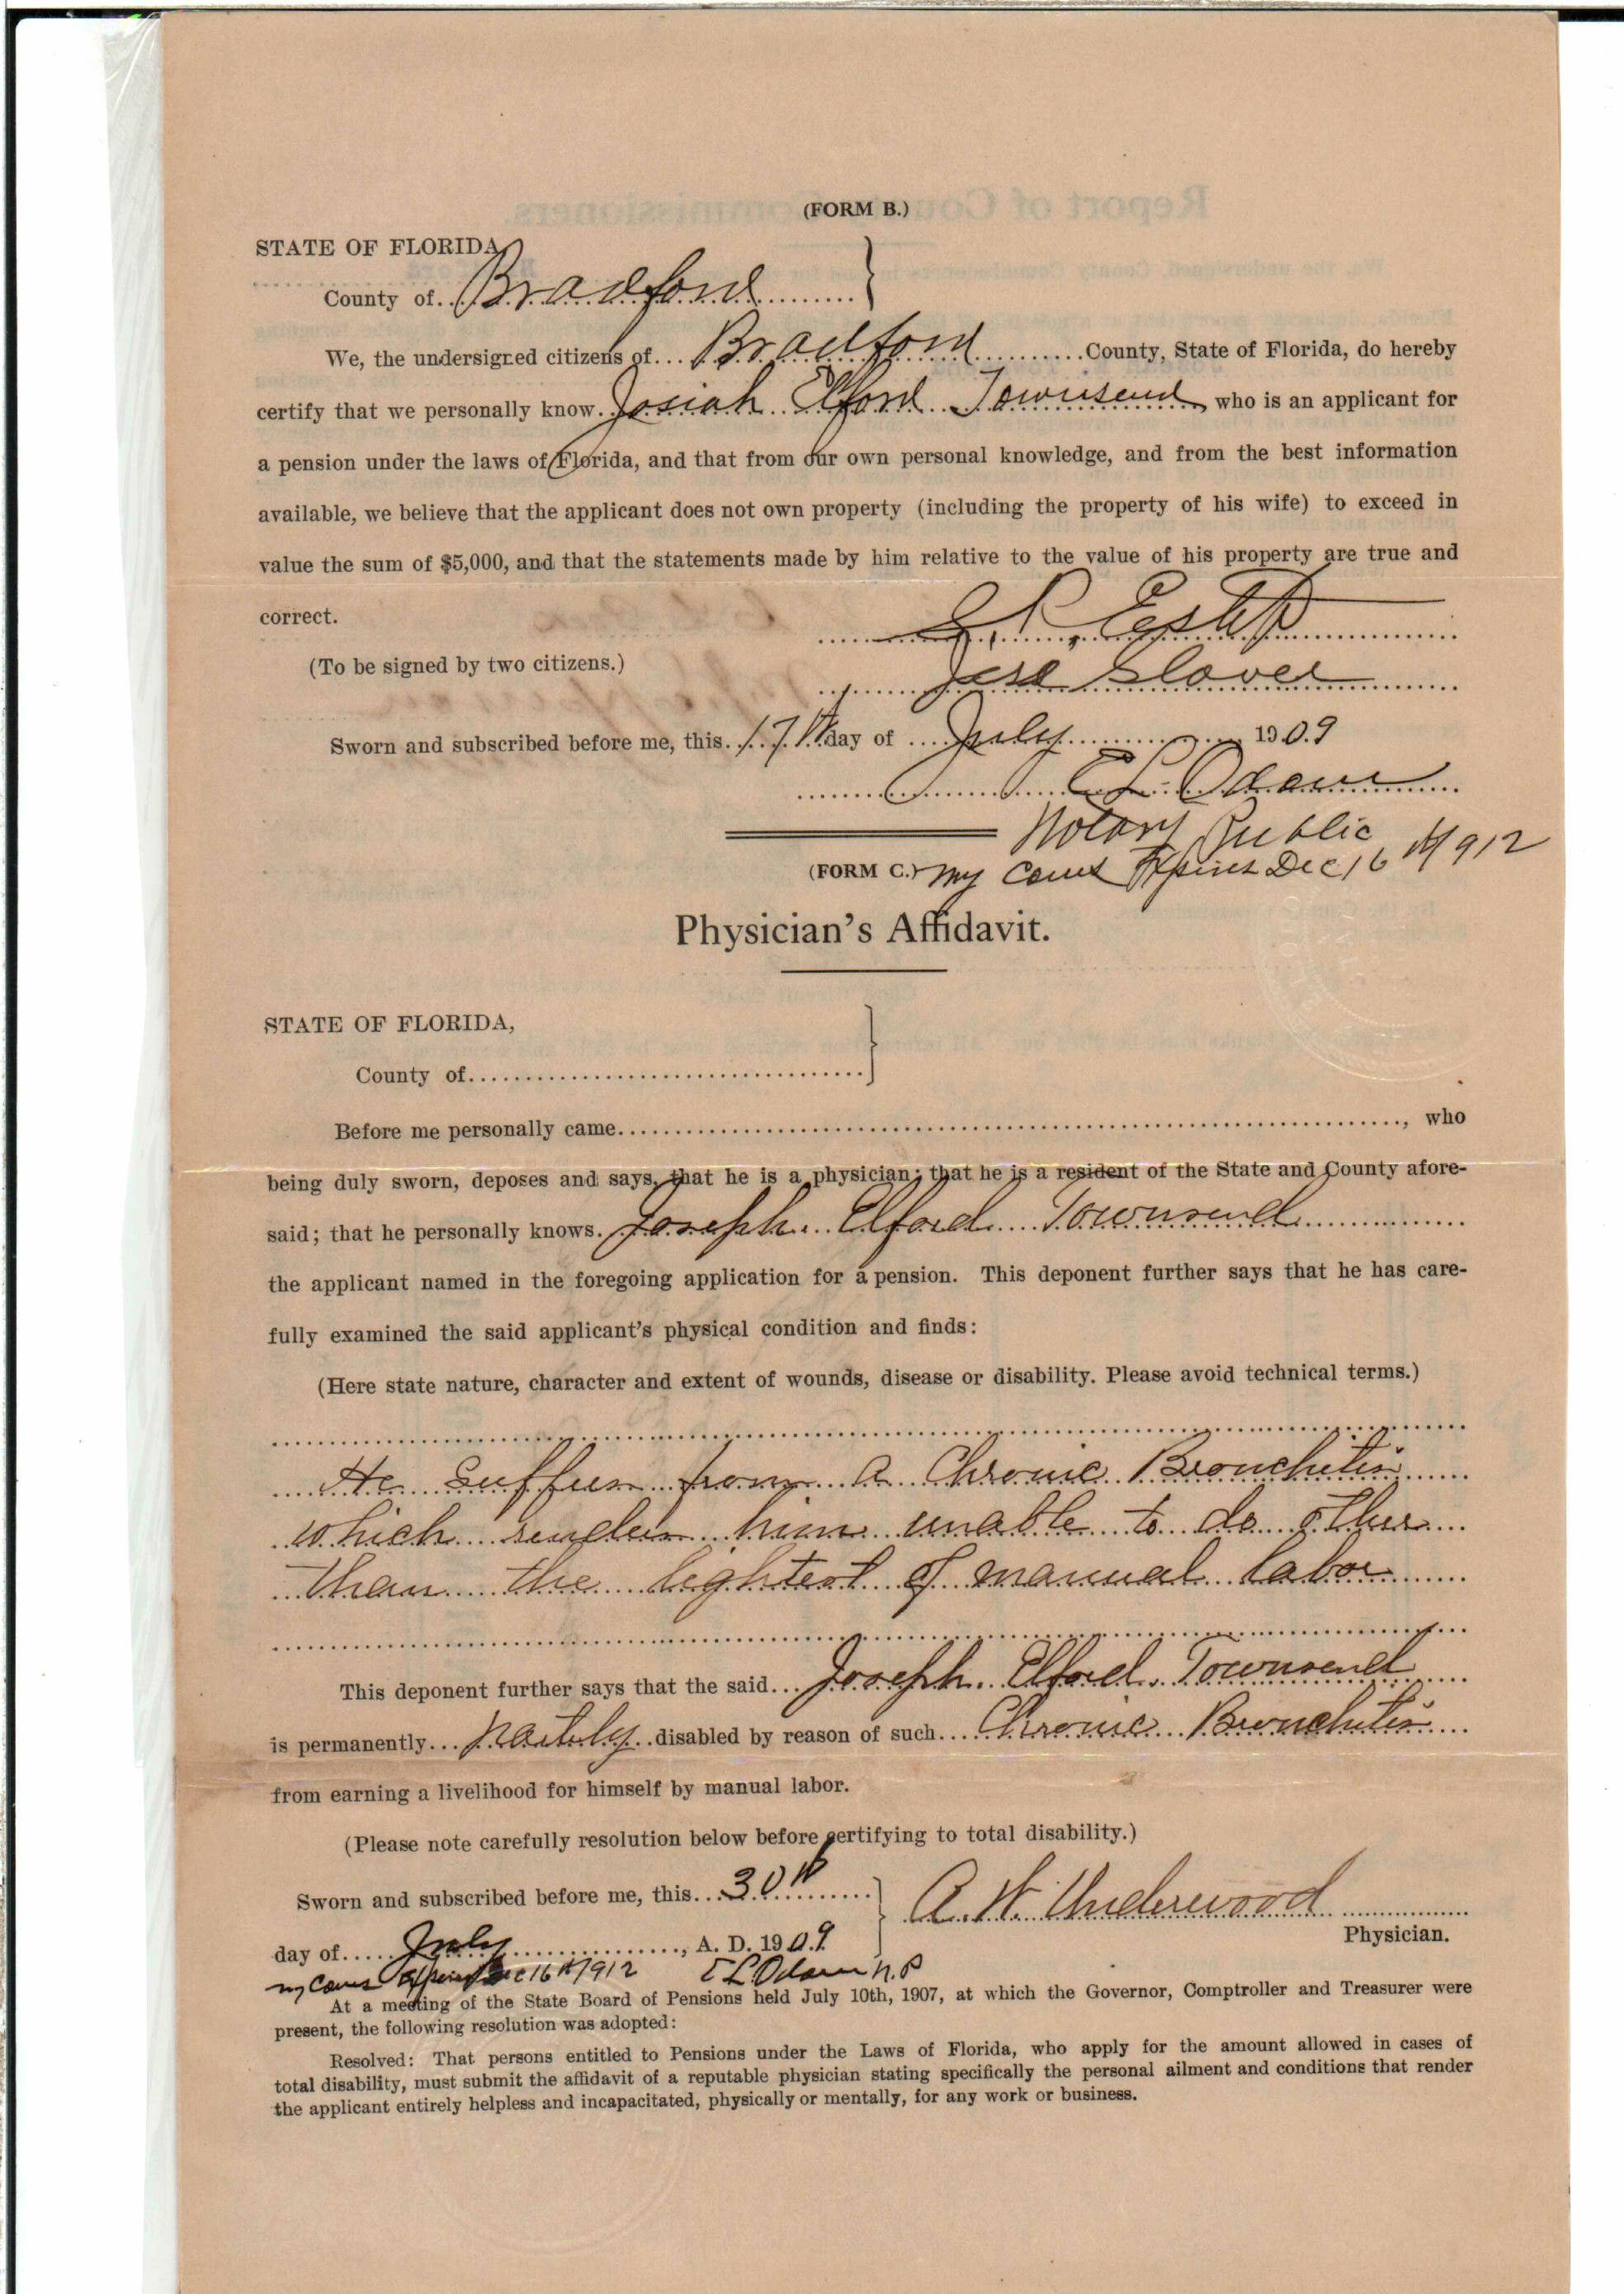 (FORM B.)
STATE OF FLORIDA,
County of Bradford
We, the undersigned citizens of Bradford County, State of Florida, do hereby
certify that we personally know Josiah Elford Townsend who is an applicant for
a pension under the laws of Florida, and that from our own personal knowledge, and from the best information
available, we believe that the applicant does not own property (including the property of his wife) to exceed in
value the sum of $5,000, and that the statements made by him relative to the value of his property are true and
correct.
Estep
(To be signed by two citizens.)
Jese Glover
Sworn and subscribed before me, this 17th day of July 1909
E L Odom
Notary Public
(FORM C.) my Coms Expires Dec 16th 1912
Physician's Affidavit.
STATE OF FLORIDA,
County of
Before me personally came, who
being duly sworn, deposes and says, that he is a physician; that he is a resident of the State and County afore-
said; that he personally knows Joseph Elford Townsend
the applicant named in the foregoing application for a pension. This deponent further says that he has care-
fully examined the said applicant's physical condition and finds:
(Here state nature, character and extent of wounds, disease or disability. Please avoid technical terms.)
He suffers from a Chronic Bronchitis
which renders him unable to do other
than the lightest of manual labor
This deponent further says that the said Joseph Elford Townsend
is permanently partly disabled by reason of such Chronic Bronchitis
from earning a livelihood for himself by manual labor.
(Please note carefully resolution below before certifying to total disability.)
Sworn and subscribed before me, this 30th
A. W. Underwood
Physician.
day of July, A. D. 1909
my Coms Expires Dec 16th 1912 E L Odom N.P
At a meeting of the State Board of Pensions held July 10th, 1907, at which the Governor, Comptroller and Treasurer were
present, the following resolution was adopted:
Resolved: That persons entitled to Pensions under the Laws of Florida, who apply for the amount allowed in cases of
total disability, must submit the affidavit of a reputable physician stating specifically the personal ailment and conditions that render
the applicant entirely helpless and incapacitated, physically or mentally, for any work or business.